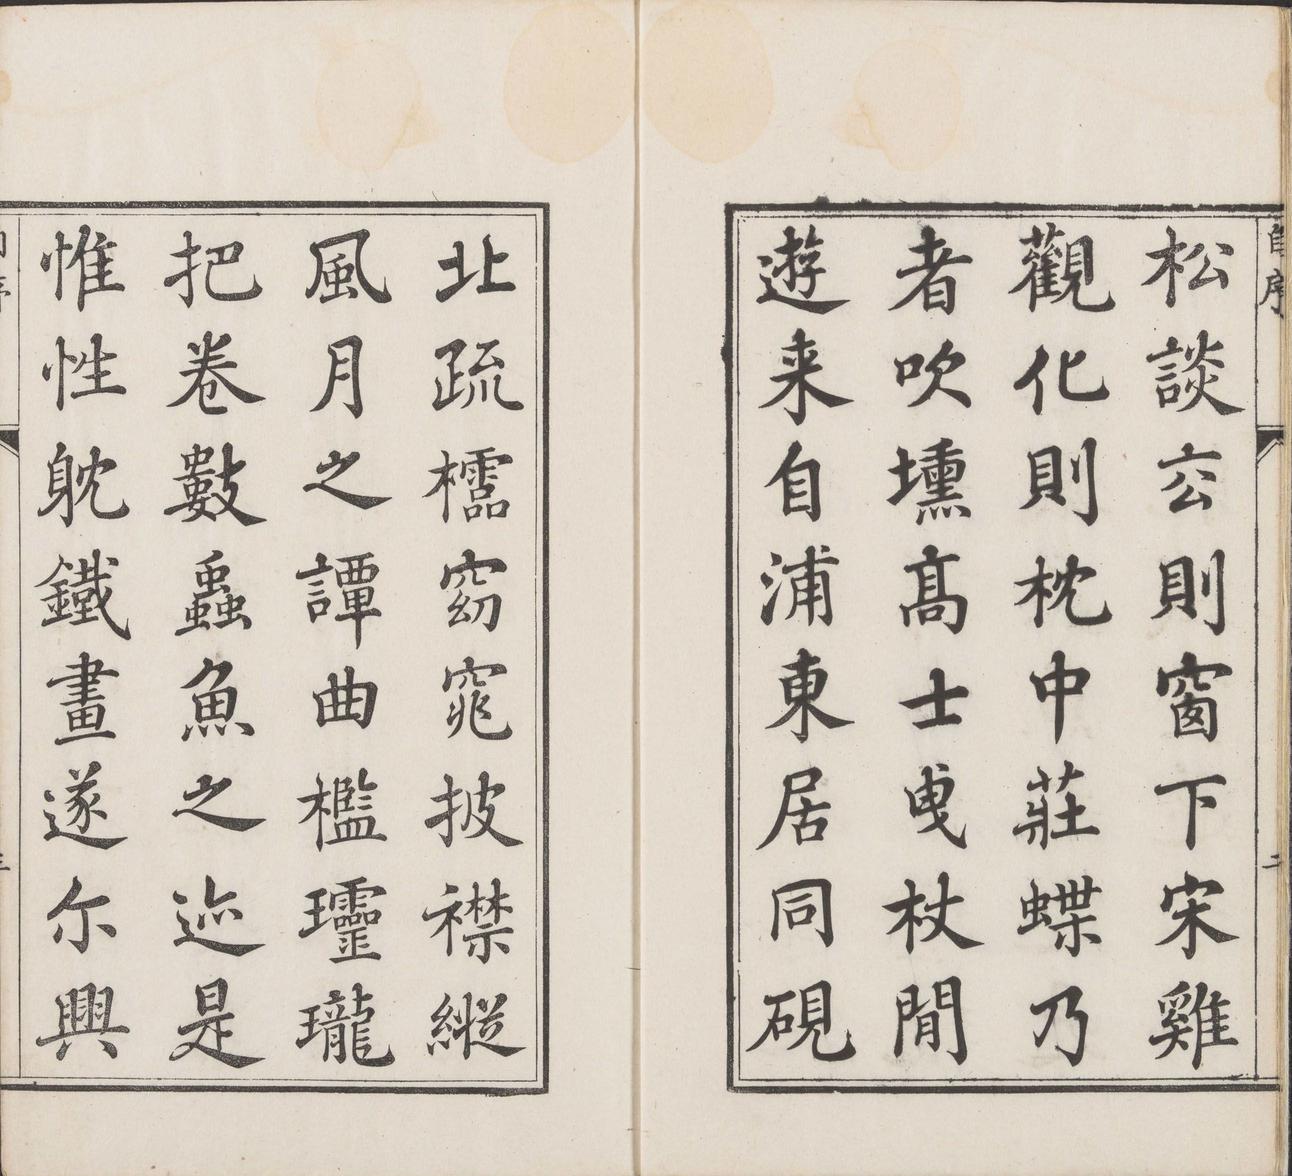 自序
二
松談玄則窗下宋雞
觀化則枕中莊蝶乃
者吹壎髙士曵杖閒
遊来自浦東居同硯
北疏櫺窈窕披襟縱
風月之譚曲檻瓏
把卷數蟲魚之迹是
惟性躭鐵畫遂尓興
自序
三